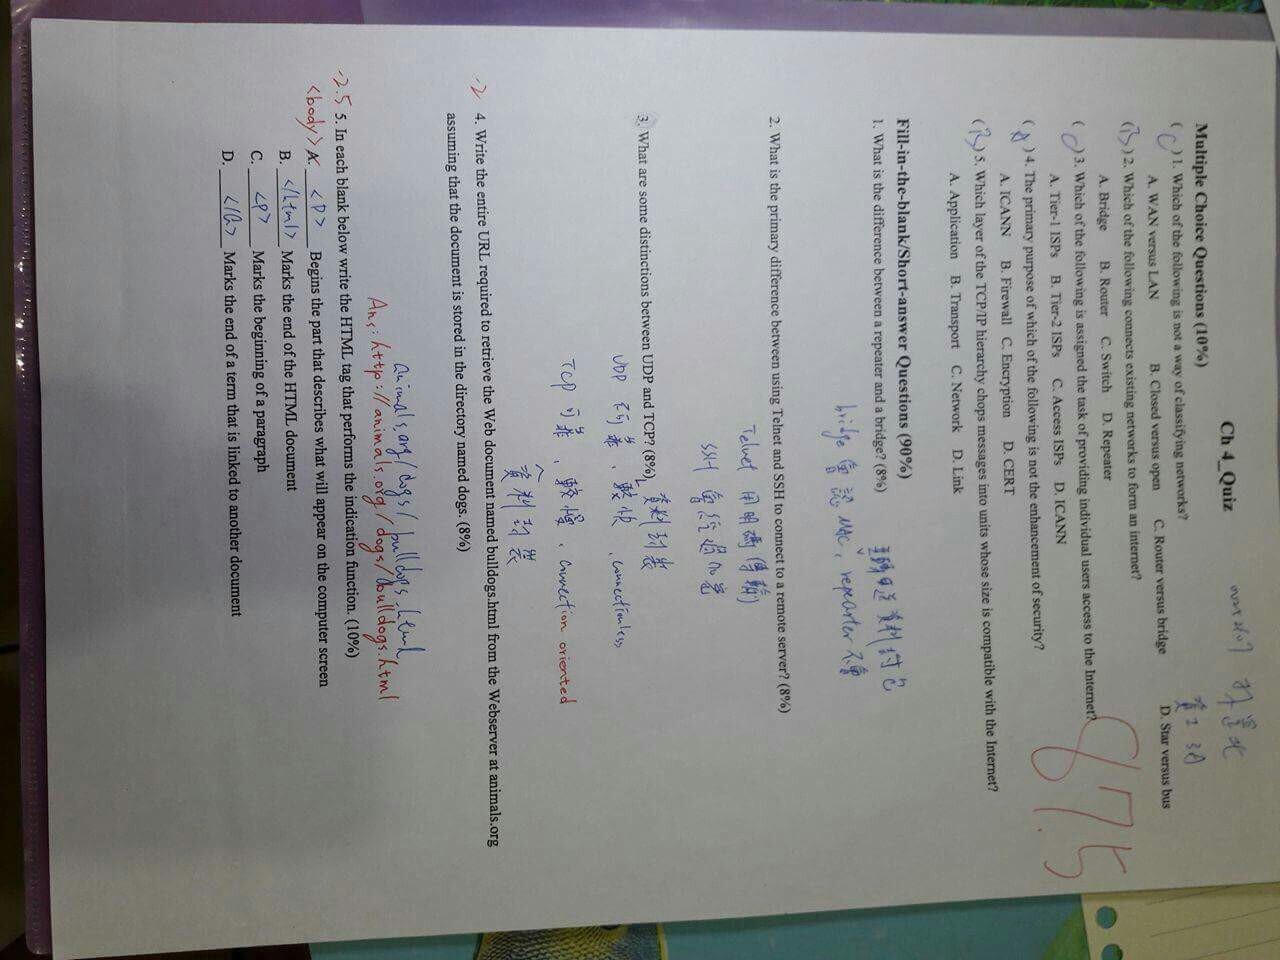 Ch 4_Quiz
資工3A
87.5
Multiple Choice Questions (10%)
(C) 1. Which of the following is not a way of classifying networks?
A. WAN versus LAN B. Closed versus open C. Router versus bridge D. Star versus bus
(B) 2. Which of the following connects existing networks to form an internet?
A. Bridge B. Router C. Switch D. Repeater
(C) 3. Which of the following is assigned the task of providing individual users access to the Internet?
A. Tier-1 ISPs B. Tier-2 ISPs C. Access ISPs D. ICANN
(A) 4. The primary purpose of which of the following is not the enhancement of security?
A. ICANN B. Firewall C. Encryption D. CERT
(B) 5. Which layer of the TCP/IP hierarchy chops messages into units whose size is compatible with the Internet?
A. Application B. Transport C. Network D. Link
Fill-in-the-blank/Short-answer Questions (90%)
1. What is the difference between a repeater and a bridge? (8%)
bridge 會認 MAC, repearter 不會
2. What is the primary difference between using Telnet and SSH to connect to a remote server? (8%)
Telnet 用明碼傳輸
SSH 會經過加密
3. What are some distinctions between UDP and TCP? (8%)
UDP 不可靠、較快、connectionless
TCP 可靠、較慢、connection oriented
-2 4. Write the entire URL required to retrieve the Web document named bulldogs.html from the Webserver at animals.org
assuming that the document is stored in the directory named dogs. (8%)
animals.org/dogs/bulldogs.html
Ans: http://animals.org/dogs/bulldogs.html
-2.5 5. In each blank below write the HTML tag that performs the indication function. (10%)
<body> A. <P> Begins the part that describes what will appear on the computer screen
B. </html> Marks the end of the HTML document
C. <P> Marks the beginning of a paragraph
D. </a> Marks the end of a term that is linked to another document